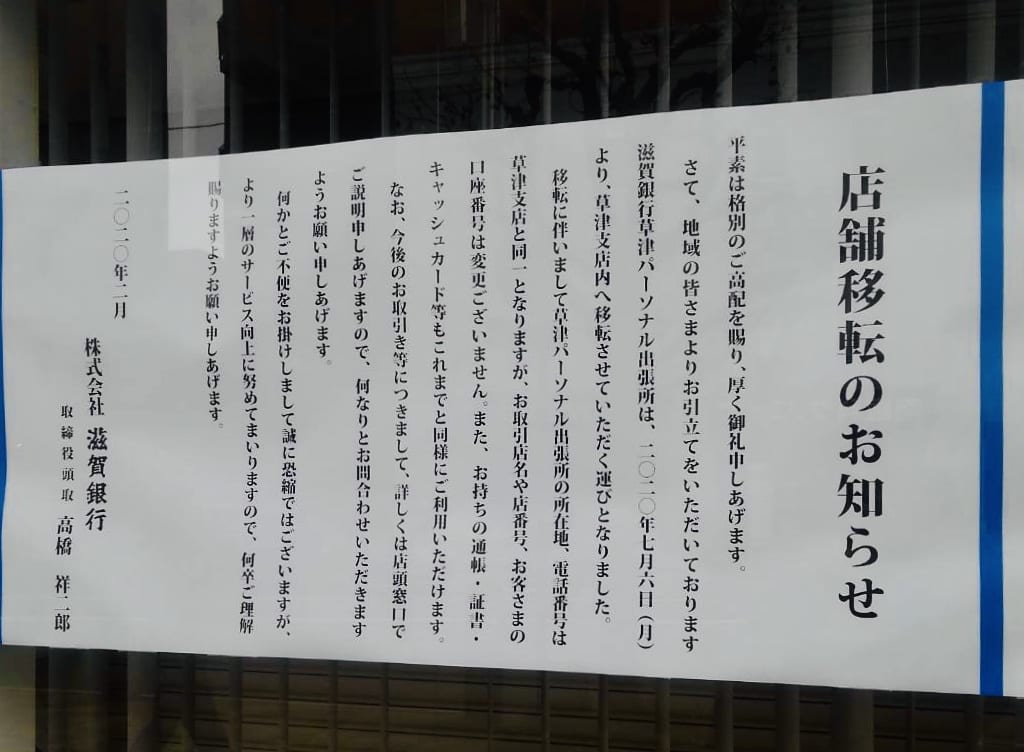 店舗移転のお知らせ
平素は格別のご高配を賜り、厚く御礼申しあげます。
さて、地域の皆さまよりお引立てをいただいております
滋賀銀行草津パーソナル出張所は、二〇二〇年七月六日(月)
より、草津支店内へ移転させていただく運びとなりました。
移転に伴いまして草津パーソナル出張所の所在地、電話番号は
草津支店と同一となりますが、お取引店名や店番号、お客さまの
口座番号は変更ございません。また、お持ちの通帳・証書・
キャッシュカード等もこれまでと同様にご利用いただけます。
なお、今後のお取引き等につきまして、詳しくは店頭窓口で
ご説明申しあげますので、何なりとお問合わせいただきます
ようお願い申しあげます。
何かとご不便をお掛けしまして誠に恐縮ではございますが、
より一層のサービス向上に努めてまいりますので、何卒ご理解
賜りますようお願い申しあげます。
二〇二〇年二月
株式会社 滋賀銀行
取締役頭取 高橋 祥二郎